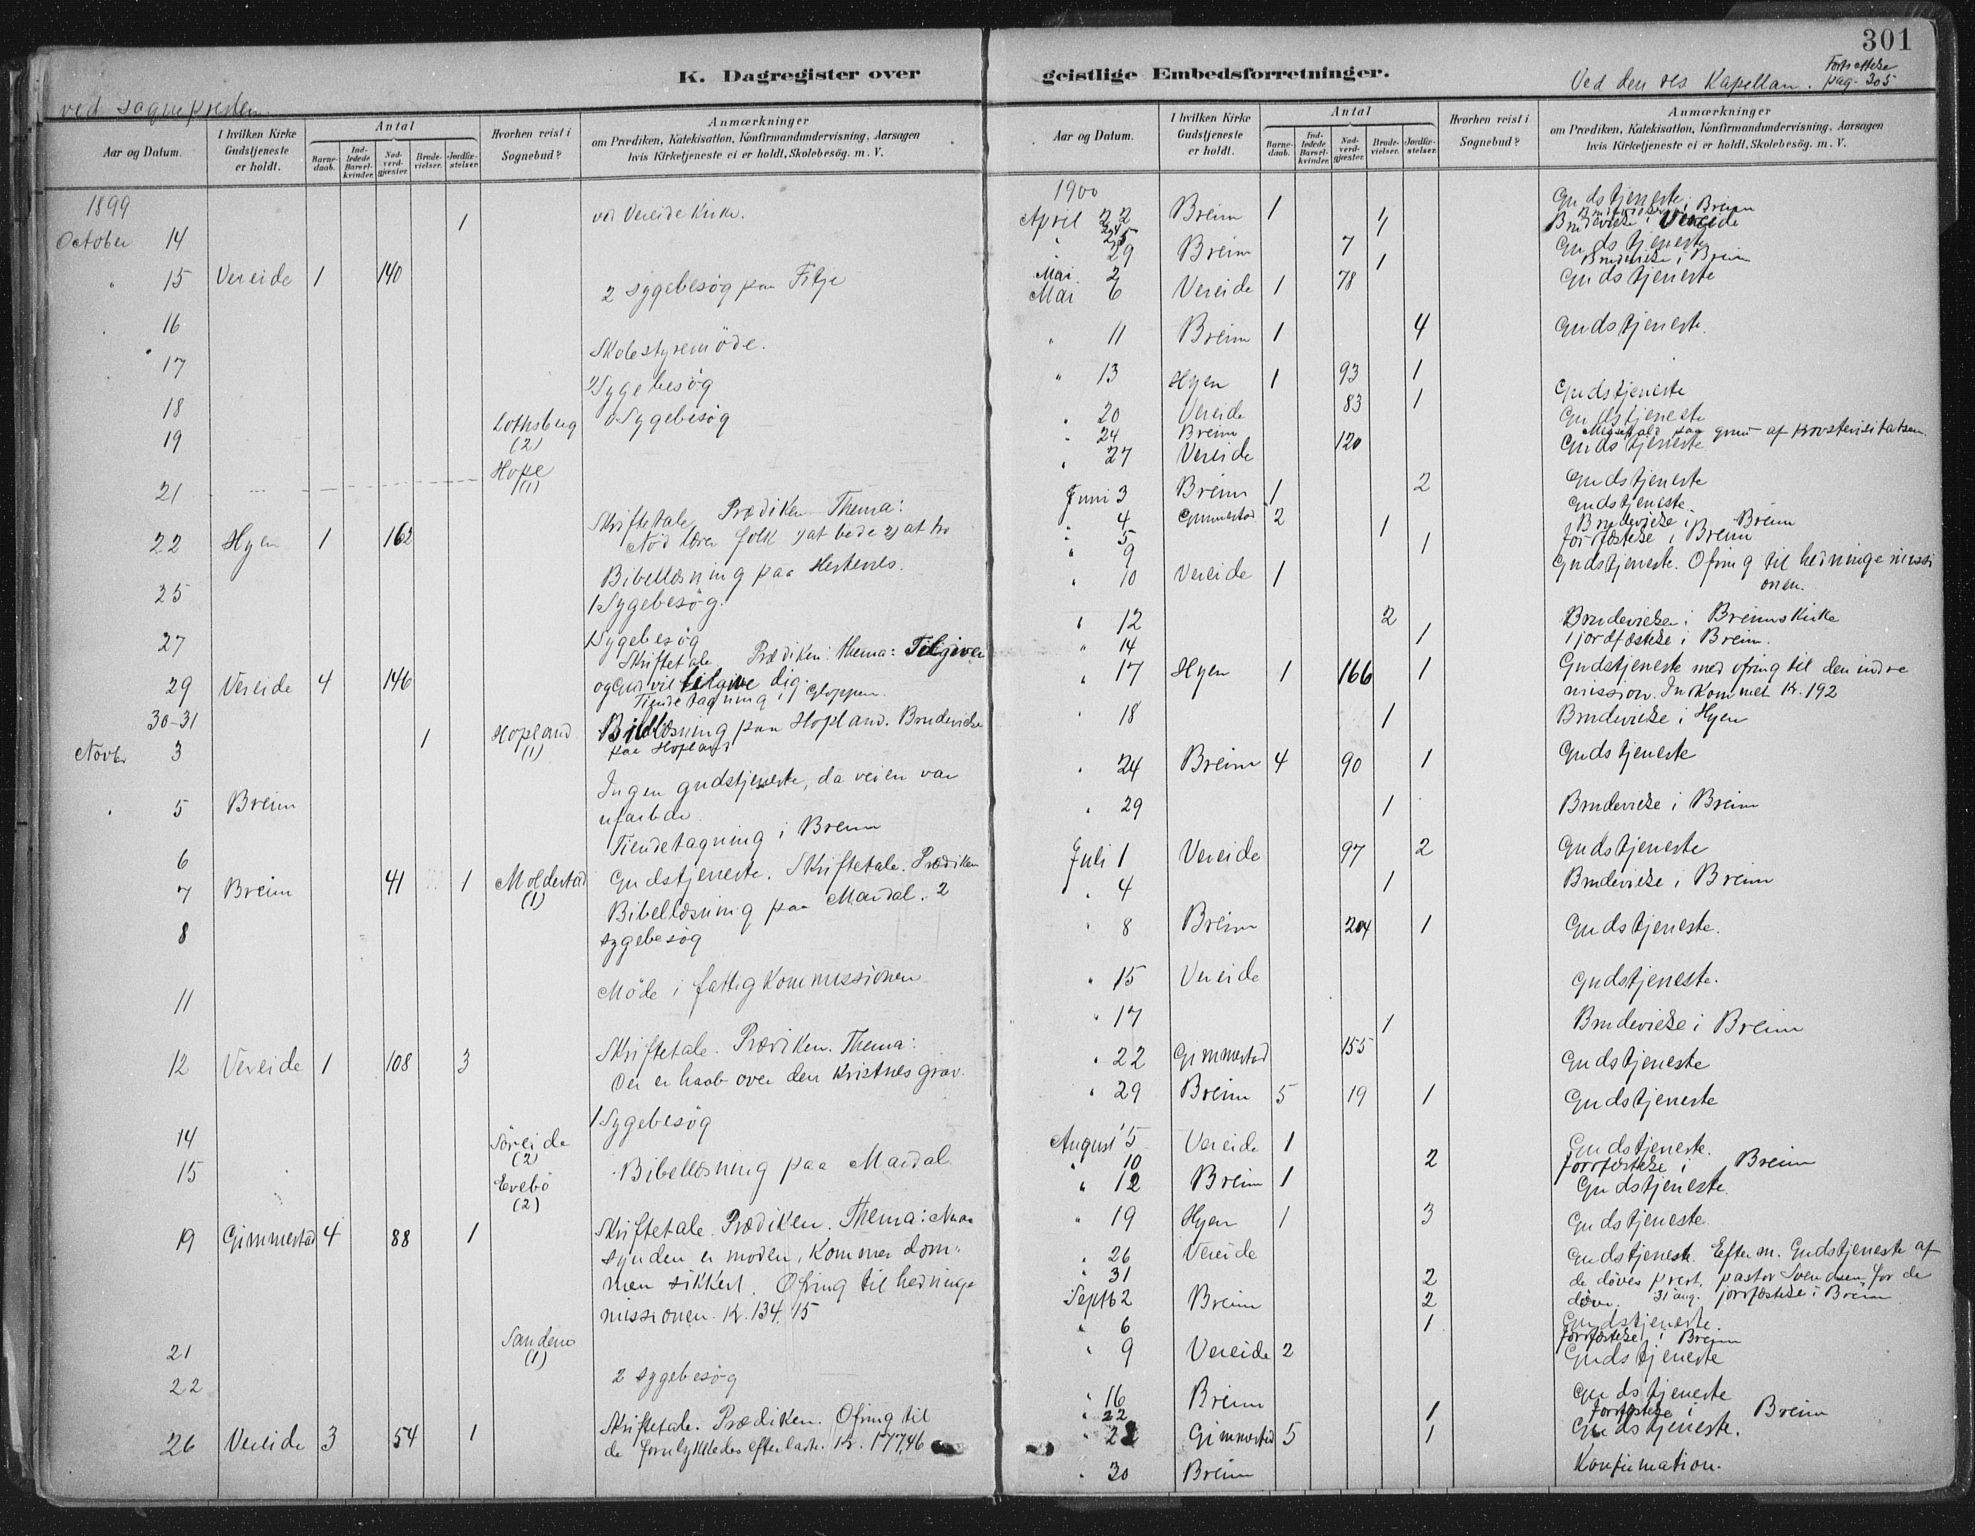 301
K. Dagregister over
ved sognepresten.
Aar og Datum.
I hvilken Kirke Gudstjeneste er holdt.
Antal
Barne-daab.
Ind-ledede Barsel-kvinder.
Nad-verd-gjæster.
Brude-vielser.
Jordfæ-stelser.
Hvorhen reist i Sognebud?
Anmærkninger
om Prædiken, Katekisation, Konfirmandundervisning, Aarsagen
hvis Kirketjeneste ei er holdt, Skolebesög m. V.
1899
1 ved Vereide Kirke.
October 14
" 15 Vereide 1 140
2 sygebesøg paa Filje
16
Skolestyremøde.
17
Sygebesøg
18
Lothsberg (2) Sygebesøg
19
Hope (1)
21
Skriftetale Prædiken Thema:
22 Hyen 1 162 Nød lærer folk 1) at bede 2) at tro
Bibellæsning paa Hestenes.
25 1 Sygebesøg.
27 1 Sygebesøg
Skriftetale Prædiken: Thema: Tilgiver
29 Vereide 4 146 og Gud vil tilgive dig.
Tiendetagning i Gloppen.
30-31
Hopland (1) Bibellæsning paa Hopland. Brudevielse
Novbr 3 1 paa Hopland
Ingen gudstjeneste, da veien var
5 Breim ufarbar.
Tiendetagning i Breim
6
7 Breim 41 1 Moldestad (1) Gudstjeneste. Skriftetale. Prædiken
Bibellæsning paa Mardal. 2
8 sygebesøg
Møde i fattigkommissionen
11
Skriftetale. Prædiken. Thema:
12 Vereide 1 108 3 Der er haab over den kristnes grav.
1 Sygebesøg
14 Søreide (2)
15 Bibellæsning paa Mardal
Evebø (2)
Skriftetale. Prædiken. Thema: Naar
19 Gimmestad 4 88 1 synden er moden, kommer dom-
men sikkert. Ofring til hedninge-
missionen. Kr. 134,15
Sandene (1)
21
22 2 sygebesøg
Skriftetale. Prædiken. Ofring til
26 Vereide 3 54 1 de forulykkedes efterladte. Kr. 177,46
geistlige Embedsforretninger.
Ved den res Kapellan. Fortsættelse pag. 305
Aar og Datum.
I hvilken Kirke Gudstjeneste er holdt.
Antal
Barne-daab.
Ind-ledede Barsel-kvinder.
Nad-verd-gjæster.
Brude-vielser.
Jordfæ-stelser.
Hvorhen reist i Sognebud?
Anmærkninger
om Prædiken, Katekisation, Konfirmandundervisning, Aarsagen
hvis Kirketjeneste ei er holdt, Skolebesög m. V.
1900
April 22 Breim 1 Gudstjeneste
25 1 Brudevielse i Vereide
" 29 Breim 7 Gudstjeneste
Mai 2 1 Brudevielse i Breim
Mai 6 Vereide 1 78 Gudstjeneste
" 11 Breim 1 4 Gudstjeneste.
" 13 Hyen 1 93 1 Gudstjeneste
" 20 Vereide 83 1 Gudstjeneste
" 24 Breim Messefald paa grund af provstevisitatsen.
" 27 Vereide 120 Gudstjeneste
Juni 3 Breim 1 2 Gudstjeneste
" 4 Gimmestad 2 Gudstjeneste.
" 5 1 Brudevielse i Breim
" 9 1 Jordfæstelse i Breim
" 10 Vereide 1 Gudstjeneste. Ofring til hedningemissi
onen.
" 12 2 Brudevielser i Breims Kirke
" 14 1 1 jordfæstelse i Breim.
" 17 Hyen 1 166 1 Gudstjeneste med ofring til den indre
mission. Indkommet Kr. 192
" 18 1 Brudevielse i Hyen
" 24 Breim 4 90 1 Gudstjeneste
" 29 1 Brudevielse i Breim
Juli 1 Vereide 97 2 Gudstjeneste
" 4 1 Brudevielse i Breim
" 8 Breim 204 1 Gudstjeneste.
" 15 Vereide Gudstjeneste.
" 17 1 Brudevielse i Breim
" 22 Gimmestad 155 Gudstjeneste
" 29 Breim 5 19 1 Gudstjeneste
August 5 Vereide 1 Gudstjeneste.
" 10 2 Jordfæstelse i Breim
" 12 Breim 1 Gudstjeneste.
" 19 Hyen 1 3 Gudstjeneste
" 26 Vereide Gudstjeneste. Efterm. Gudstjeneste af
" 31 2 de døves prest, pastor Svendsen for de
døve. 31 aug. jordfæstelse i Breim
Septb 2 Breim 2 Gudstjeneste.
" 6 1 Jordfæstelse i Breim
" 9 Vereide 2 Gudstjeneste
" 16 Breim Gudstjeneste
" 22 1 Jordfæstelse i Breim
" 23 Gimmestad 5 1 Gudstjeneste.
" 30 Breim Konfirmation.